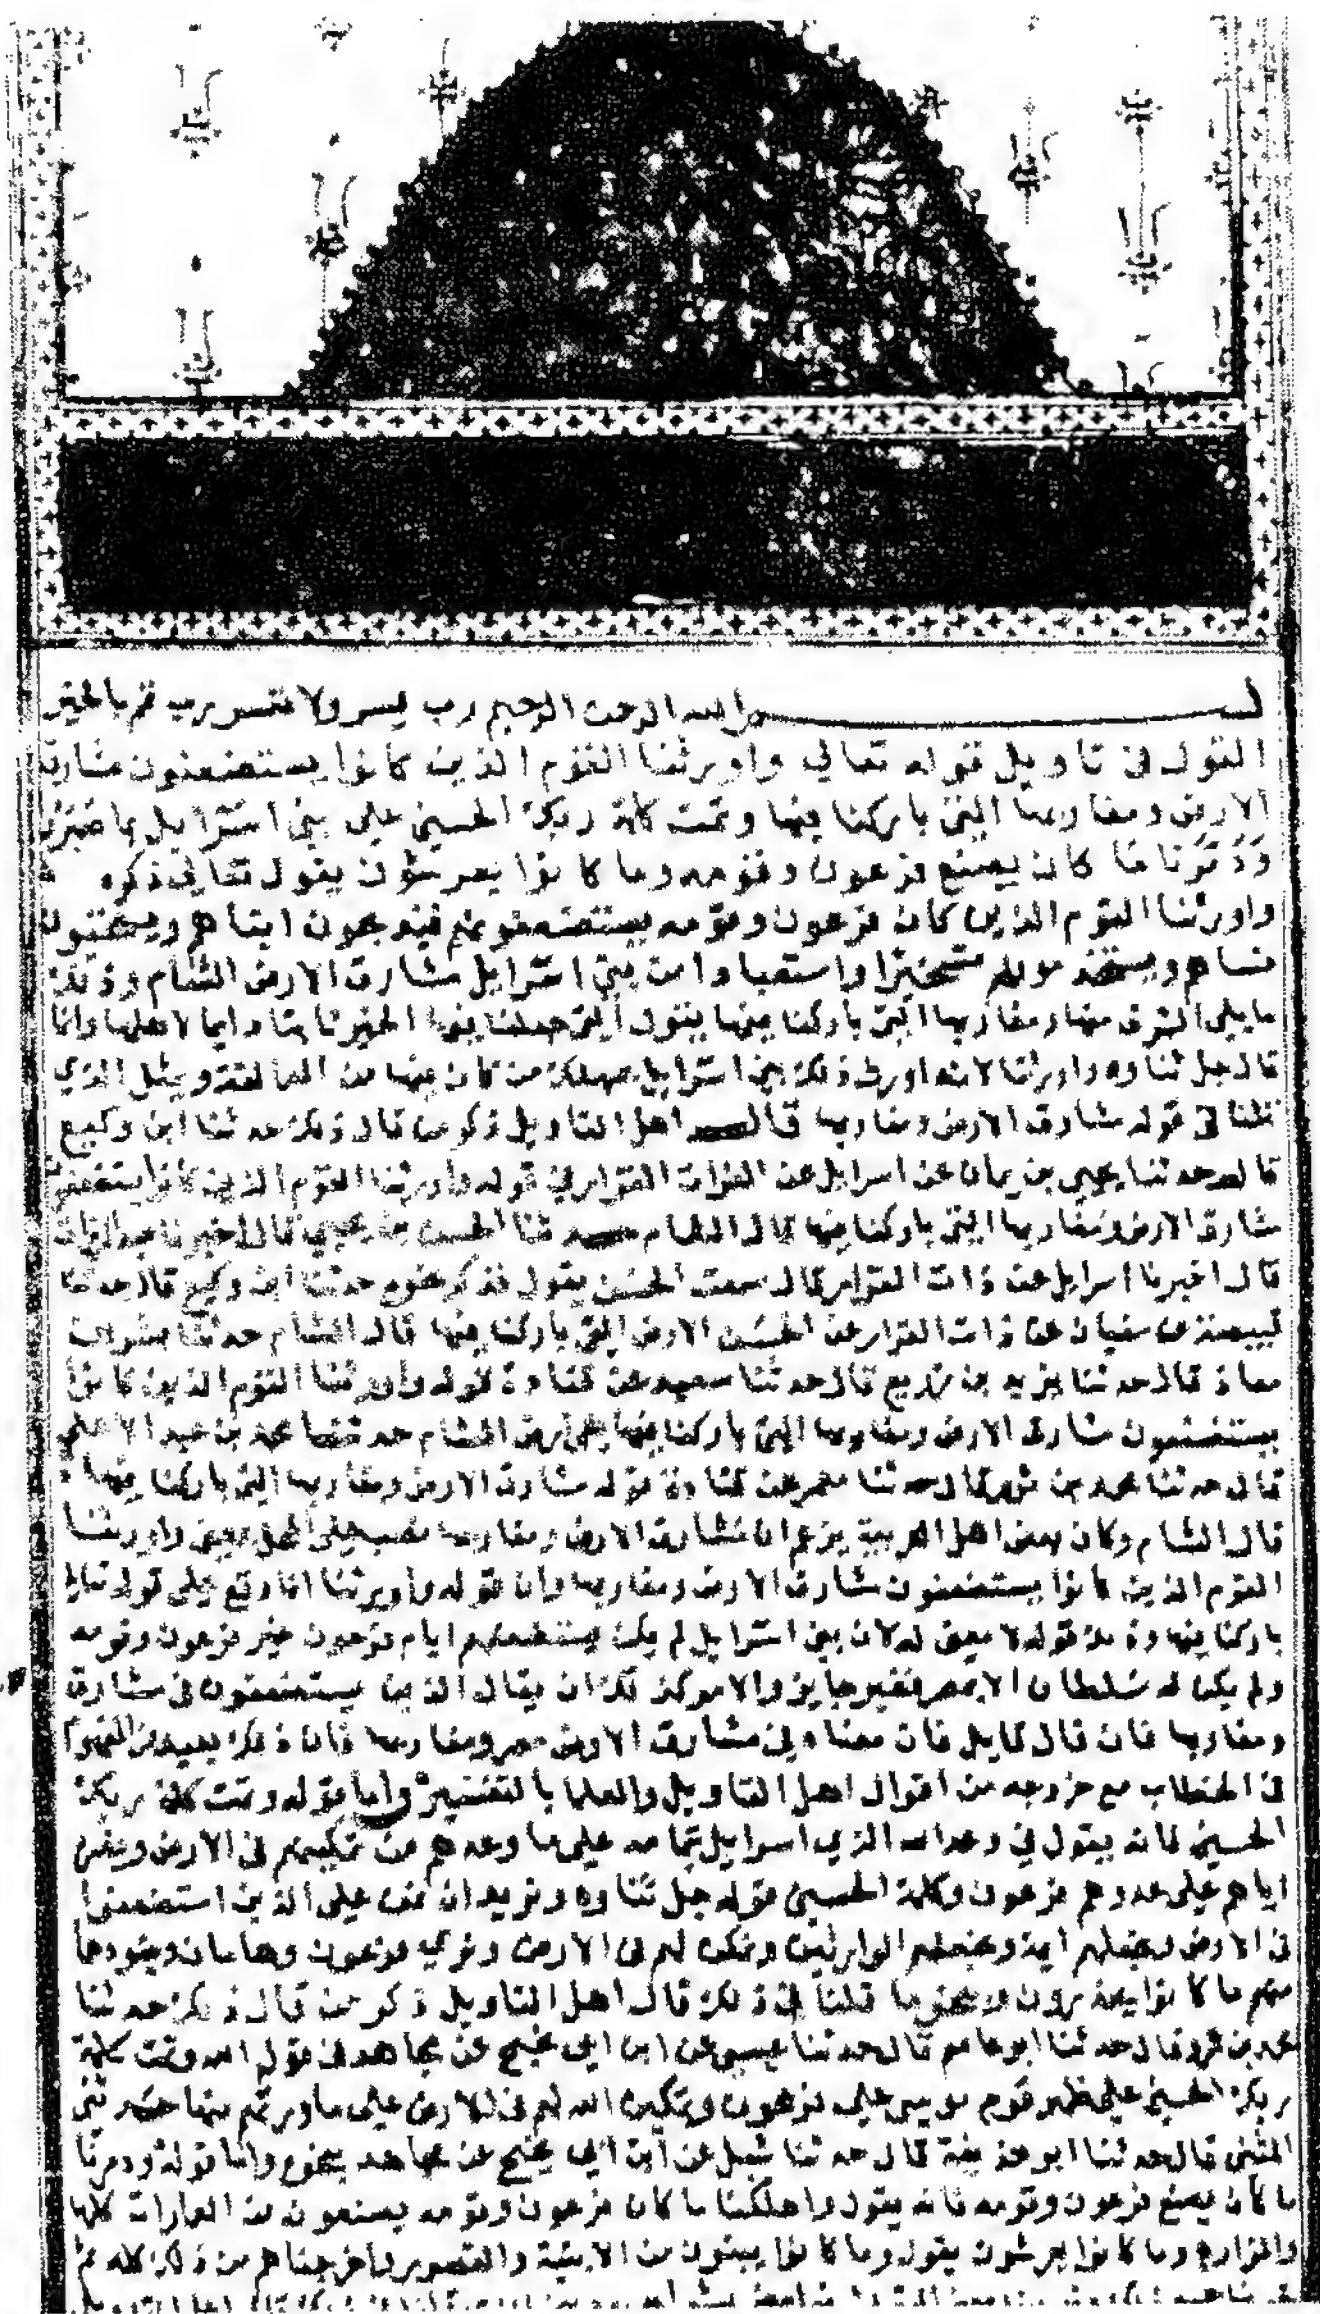 بسم الله الرحمن الرحيم رب يسر ولا تعسر رب تمم بالخير
القول في تاويل قوله تعالى واورثنا القوم الذين كانوا يستضعفون مشارق
الارض ومغاربها التي باركنا فيها وتمت كلمة ربك الحسني على بني اسرايل بما صبروا
ودمرنا ما كان يصنع فرعون وقومه وما كانوا يعرشون يقول تعالى ذكره
واورثنا القوم الذين كان فرعون وقومه يستضعفونهم فيذبحون ابناهم ويستحيون
نساهم من بني اسرايل مشارق الارض الشام وذلك
ما يلي الشرق منها ومغاربها التي باركنا فيها يقول التي جعلنا فيها الخير ثابتا دايما لاهلها وانما
قال جل ثناوه واورثنا لانه اورث ذلك بني اسرايل بمهلك من كان فيها من العمالقة وبمثل الذي
قلنا في قوله مشارق الارض ومغاربها قال اهل التاويل ذكر من قال ذلك حدثنا ابن وكيع
قال حدثنا يحيى بن يمان عن اسرايل عن الفرات القزاز في قوله واورثنا القوم الذين كانوا يستضعفون
مشارق الارض ومغاربها التي باركنا فيها قال الشام حدثنا الحسن بن يحيى قال اخبرنا عبد الرزاق
قال اخبرنا اسرايل عن فرات القزاز قال سمعت الحسن يقول فذكر نحوه حدثنا ابن وكيع قال حدثنا
قبيصة عن سفيان عن فرات القزاز عن الحسن الارض التي باركنا فيها قال الشام حدثنا بشر بن
معاذ قال حدثنا يزيد بن زريع قال حدثنا سعيد عن قتادة قوله واورثنا القوم الذين كانوا
يستضعفون مشارق الارض ومغاربها التي باركنا فيها هي ارض الشام حدثنا محمد بن عبد الاعلى
قال حدثنا محمد بن ثور قال حدثنا معمر عن قتادة قوله مشارق الارض ومغاربها التي باركنا فيها
قال الشام وكان بعض اهل العربية يزعم ان مشارق الارض ومغاربها نصب على المحل يعني واورثنا
القوم الذين كانوا يستضعفون مشارق الارض ومغاربها وان قوله واورثنا انما وقع على قوله التي
باركنا فيها وذلك قوله لا معنى له لان بني اسرايل لم يكن يستضعفهم ايام فرعون غير فرعون وقومه
ولم يكن له سلطان الا بمصر فغير جايز والامر كذلك ان يقال الذين يستضعفون في مشارق
ومغاربها فان قال قايل فان معناه في مشارق الارض مصر ومغاربها فان ذلك بعيد من المفهوم
في الخطاب مع خروجه من اقوال اهل التاويل والعلما بالتفسير واما قوله وتمت كلمة ربك
الحسني فانه يقول وفى وعد الله الذي اسرايل بتمامه على ما وعدهم من تمكينهم في الارض ونصره
اياهم على عدوهم فرعون وكلمة الحسني قوله جل ثناوه ونريد ان نمن على الذين استضعفوا
في الارض ونجعلهم ايمة ونجعلهم الوارثين ونمكن لهم في الارض ونري فرعون وهامان وجنودهما
منهم ما كانوا يحذرون وبنحو ما قلنا في ذلك قال اهل التاويل ذكر من قال ذلك حدثنا
محمد بن عمرو قال حدثنا ابو عاصم قال حدثنا عيسى عن ابن ابي نجيح عن مجاهد في قول الله وتمت كلمة
ربك الحسني على ظهر قوم موسى على فرعون وتمكين الله لهم في الارض على ما ورثهم منها حدثني
المثنى قال حدثنا ابو حذيفة قال حدثنا شبل عن ابن ابي نجيح عن مجاهد بنحوه واما قوله ودمرنا
ما كان يصنع فرعون وقومه فانه يقول واهلكنا ما كان فرعون وقومه يصنعون من العمارات كلها
والمزارع وما كانوا يعرشون يقول وما كانوا يبنون من الابنية والقصور واخرجناهم من ذلك كله